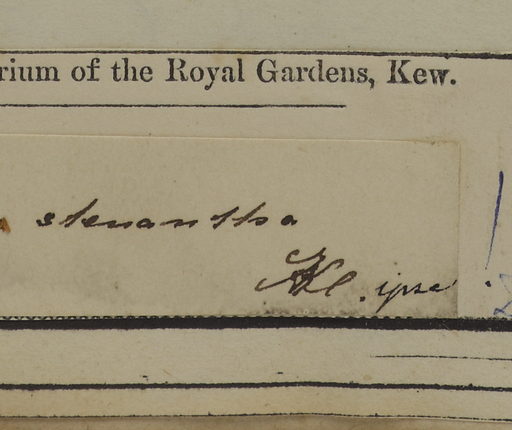 rium of the Royal Gardens, Kew.
stenantha
Kl. ipse